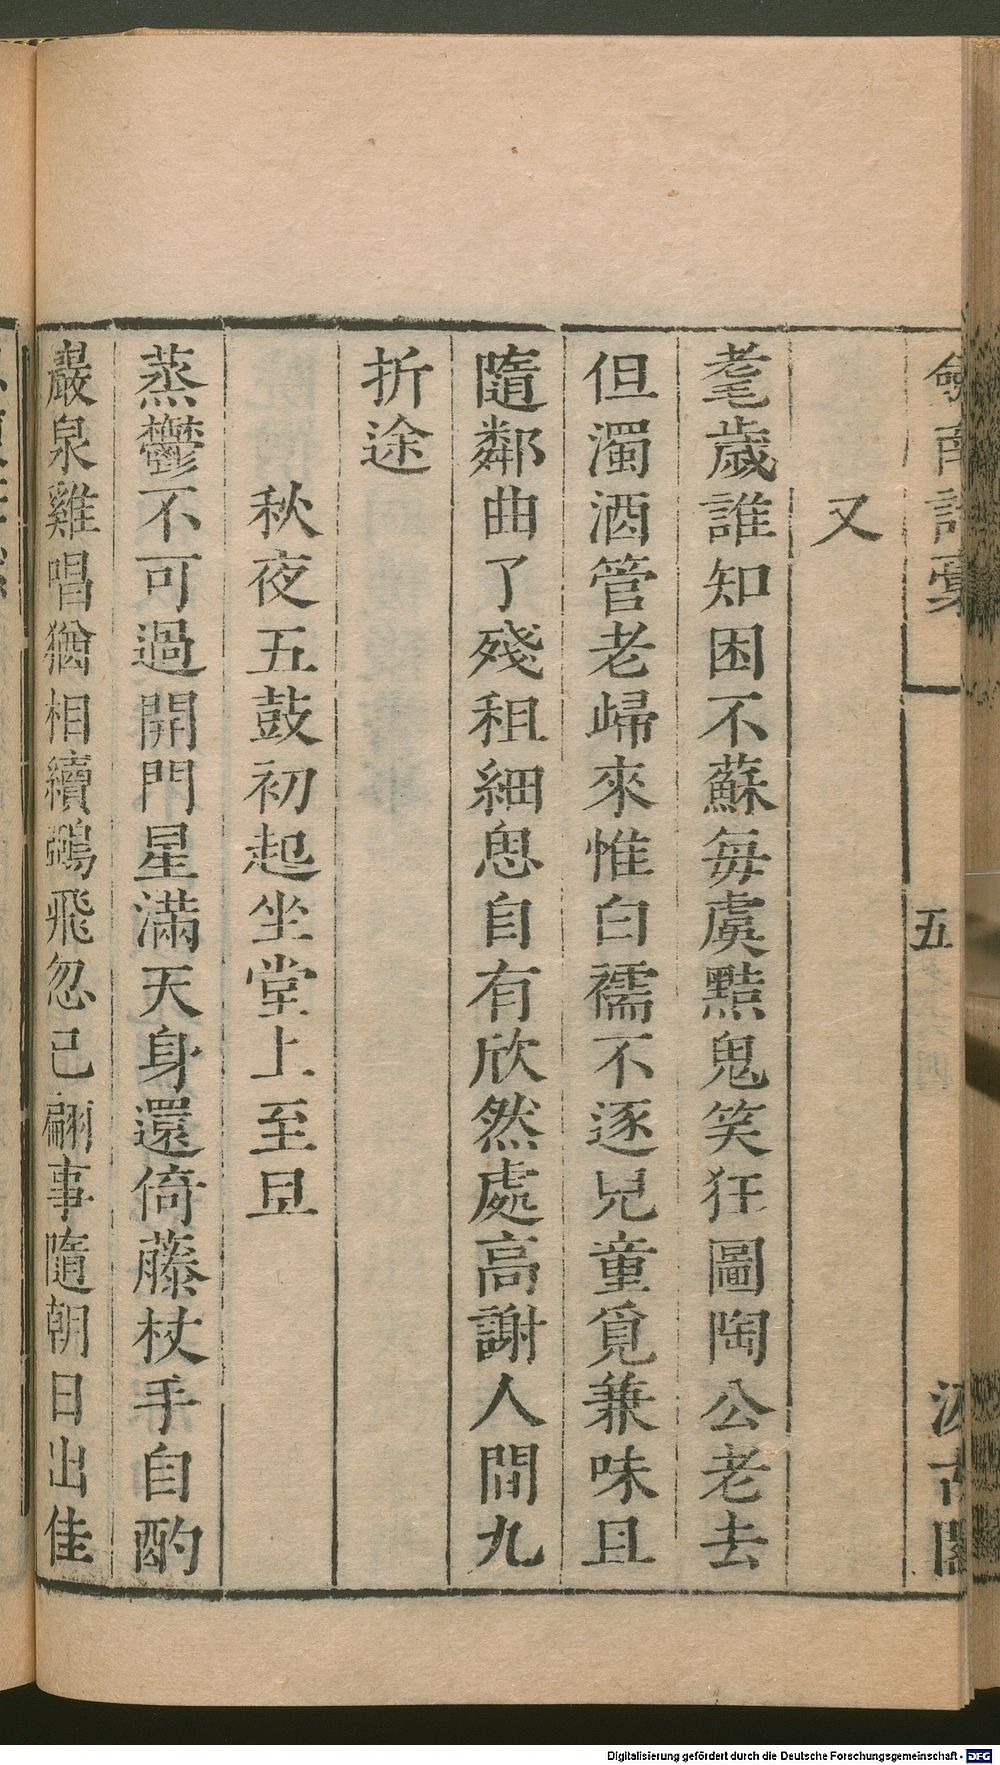 劒南詩稾
五
汲古閣
又
耄歲誰知困不蘇每虞黠鬼笑狂圖陶公老去
但濁酒管老歸來惟白襦不逐兒童覓兼味且
隨鄰曲了殘租細思自有欣然處高謝人間九
折途
秋夜五鼓初起坐堂上至旦
蒸鬱不可過開門星滿天身還倚藤杖手自酌
巖泉雞唱猶相續鵶飛忽已翩事隨朝日出佳
Digitalisierung gefördert durch die Deutsche Forschungsgemeinschaft - DFG